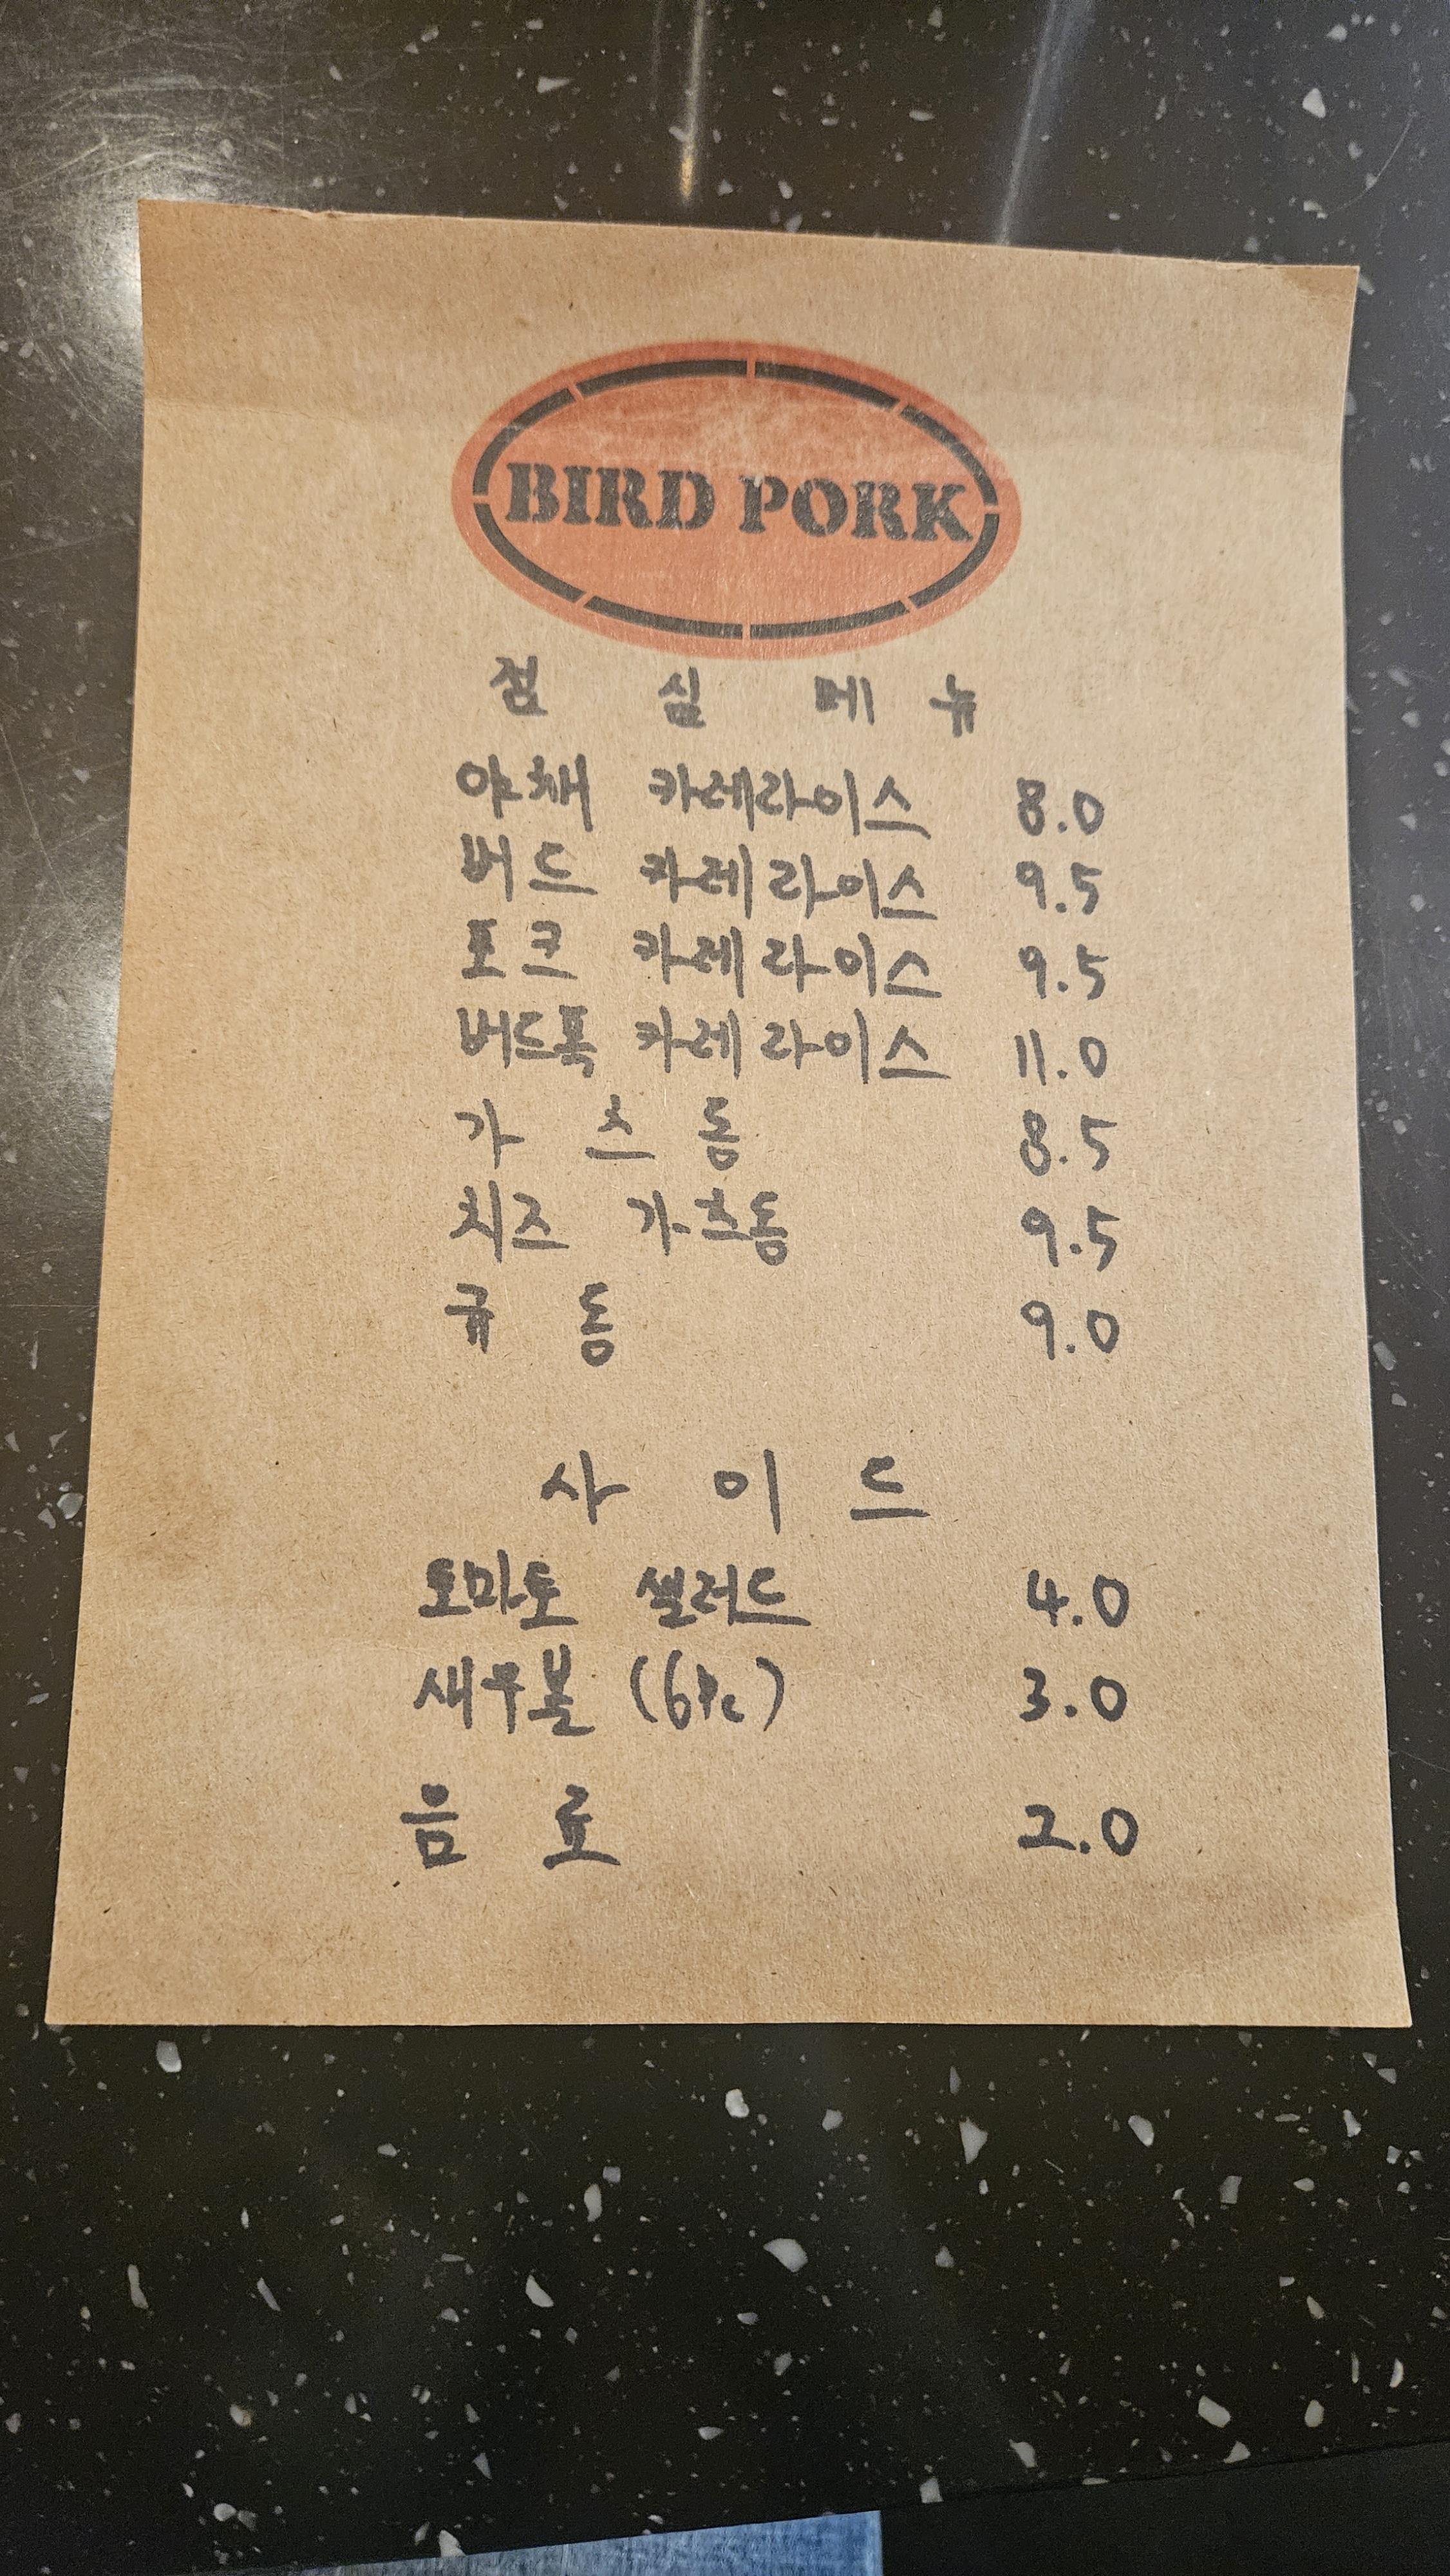 BIRD PORK
점심메뉴
야채 카레라이스 8.0
버드 카레라이스 9.5
포크 카레라이스 9.5
버드폭 카레라이스 11.0
가츠동 8.5
치즈 가츠동 9.5
규동 9.0
사이드
토마토 샐러드 4.0
새우볼 (6Pc) 3.0
음료 2.0